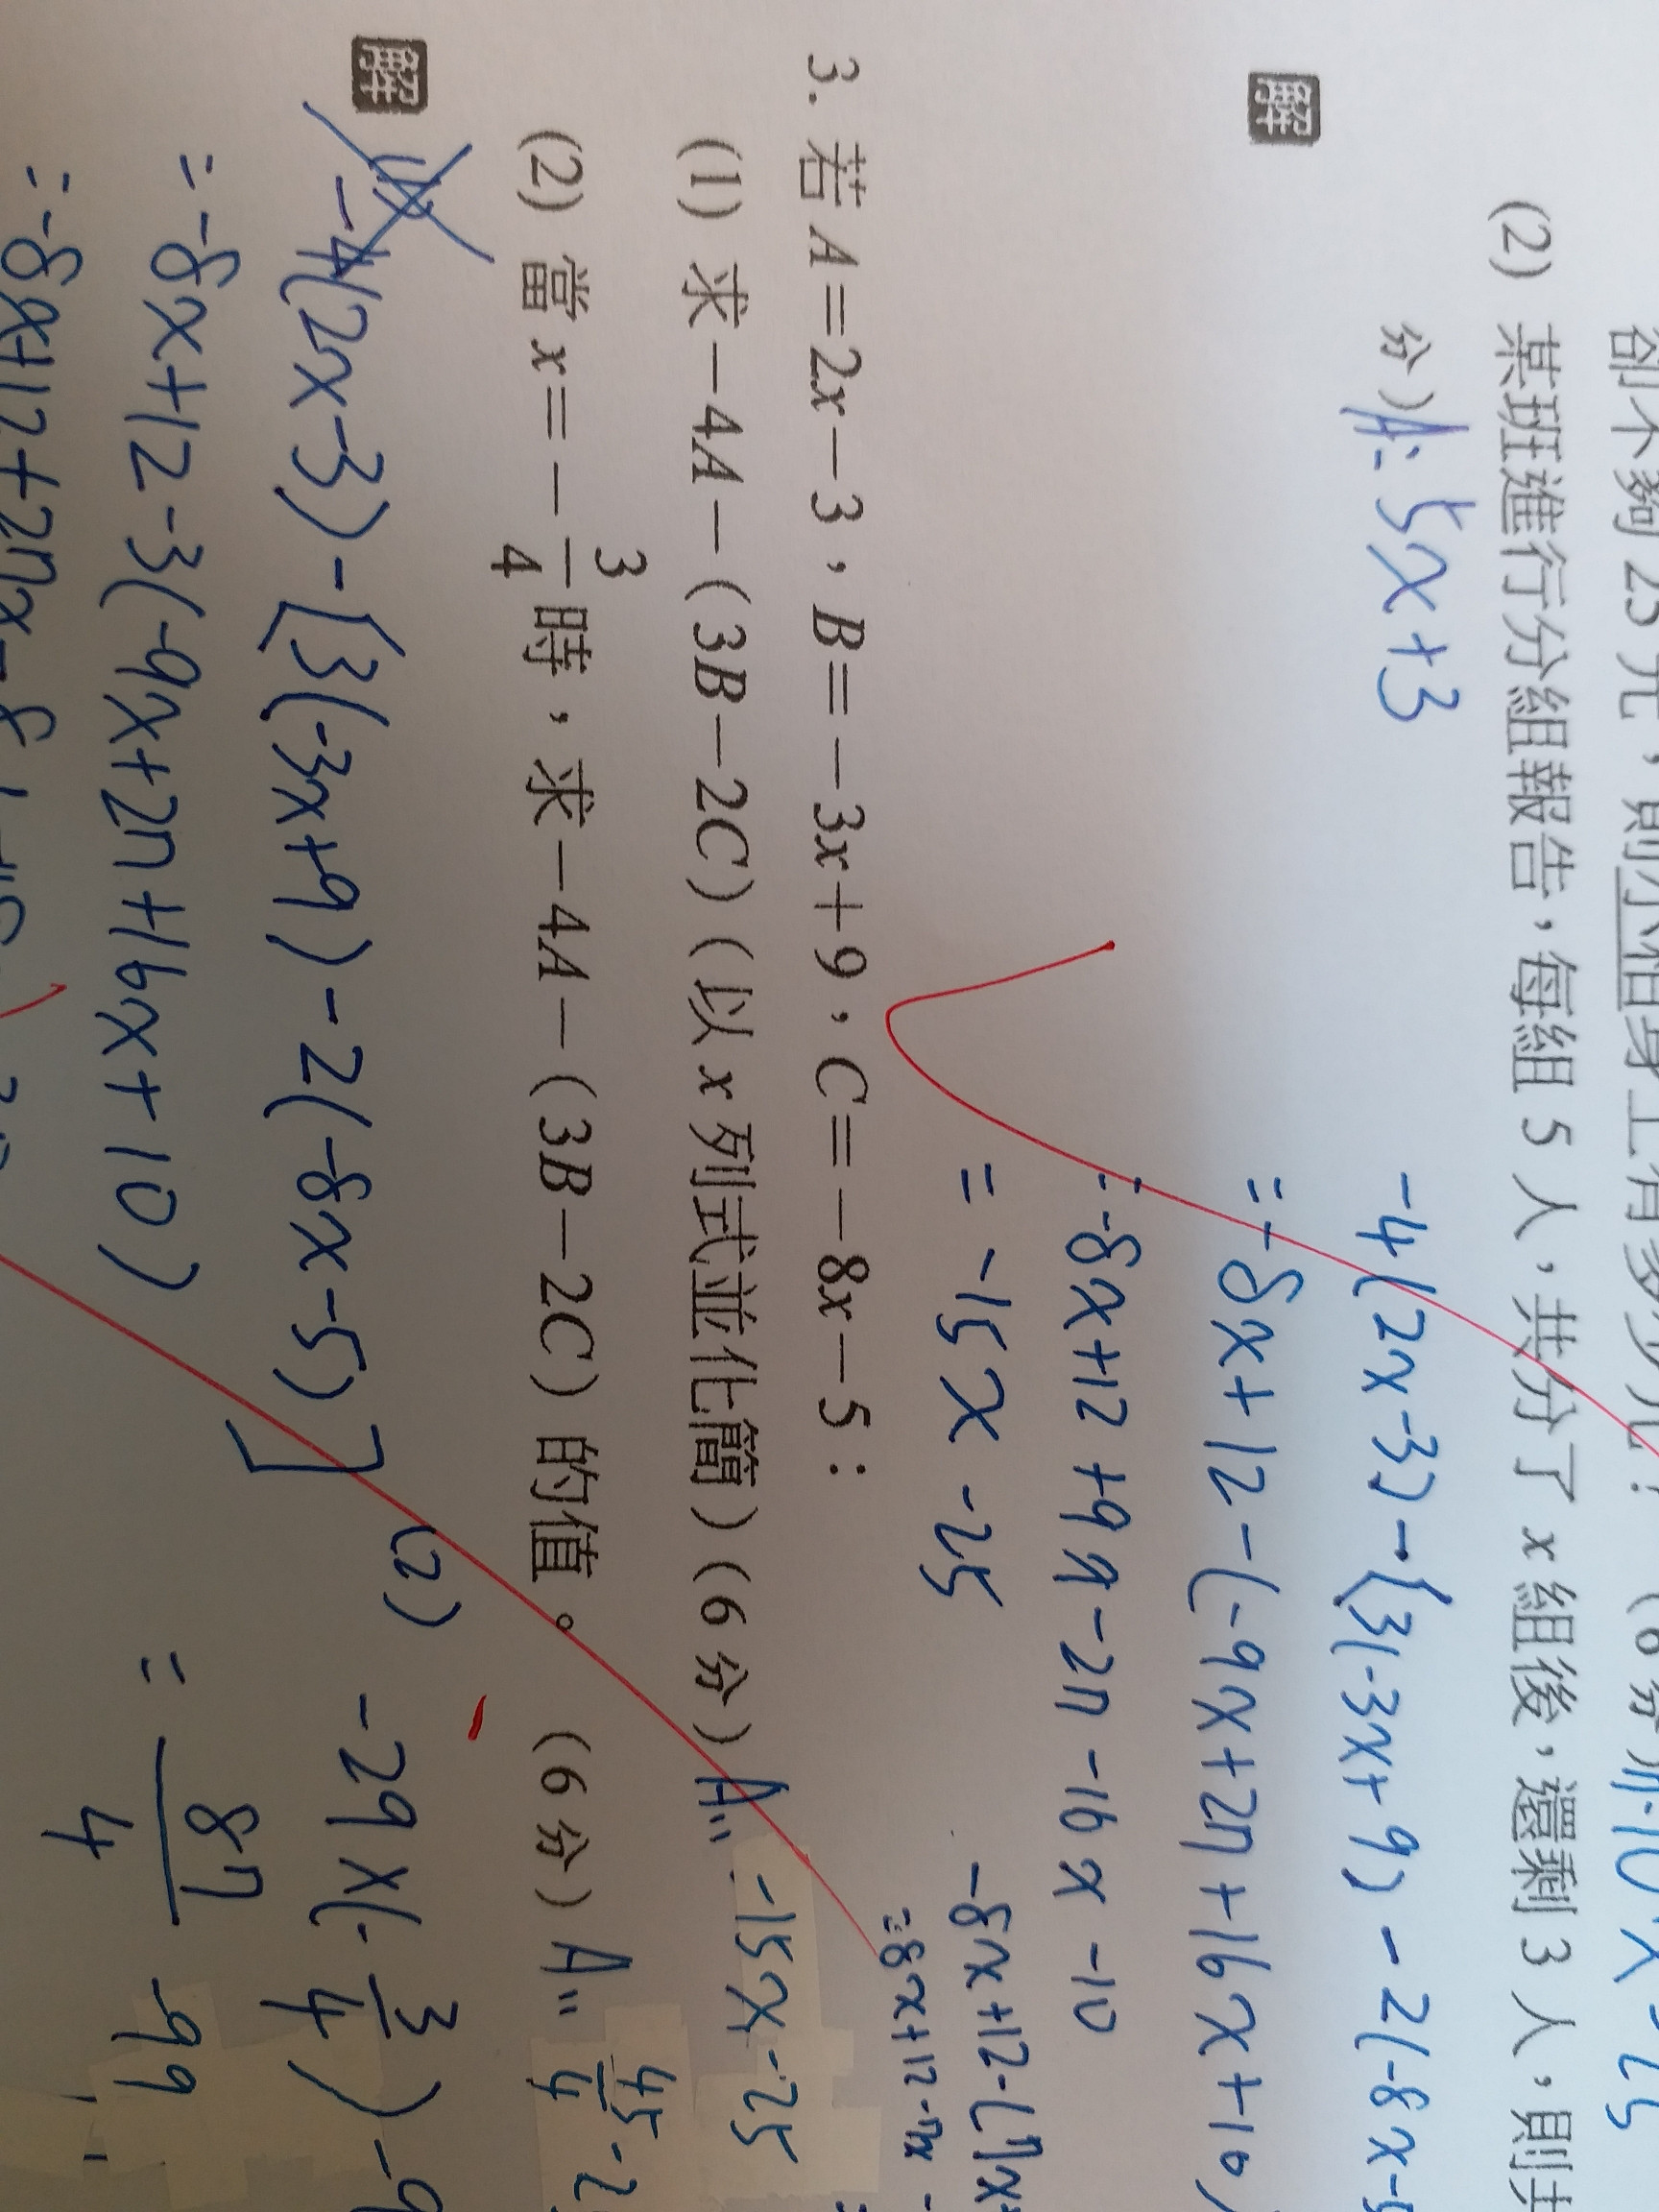 卻不夠25元，則小柏身上有多少元？（6分）
(2) 某班進行分組報告，每組5人，共分了x組後，還剩3人，則
分）A: 5x+3
解
-4(2x-3)-[3(-3x+9)-2(-8x-5
=-8x+12-(-9x+27+16x+10)
=-8x+12+9x-27-16x-10
=-15x-25
-8x+12-(7x
=-8x+12-7x-
3. 若A=2x-3，B=-3x+9，C=-8x-5：
(1) 求-4A-(3B-2C)（以x列式並化簡）（6分）A: -15x-25
(2) 當x=-3/4時，求-4A-(3B-2C)的值。（6分）A: 45/4-2
解
-4(2x-3)-[3(-3x+9)-2(-8x-5)]
=-8x+12-3(-9x+27+16x+10)
=-8x+12+27x-8
(2) -29×(-3/4)-9
=87/4-99